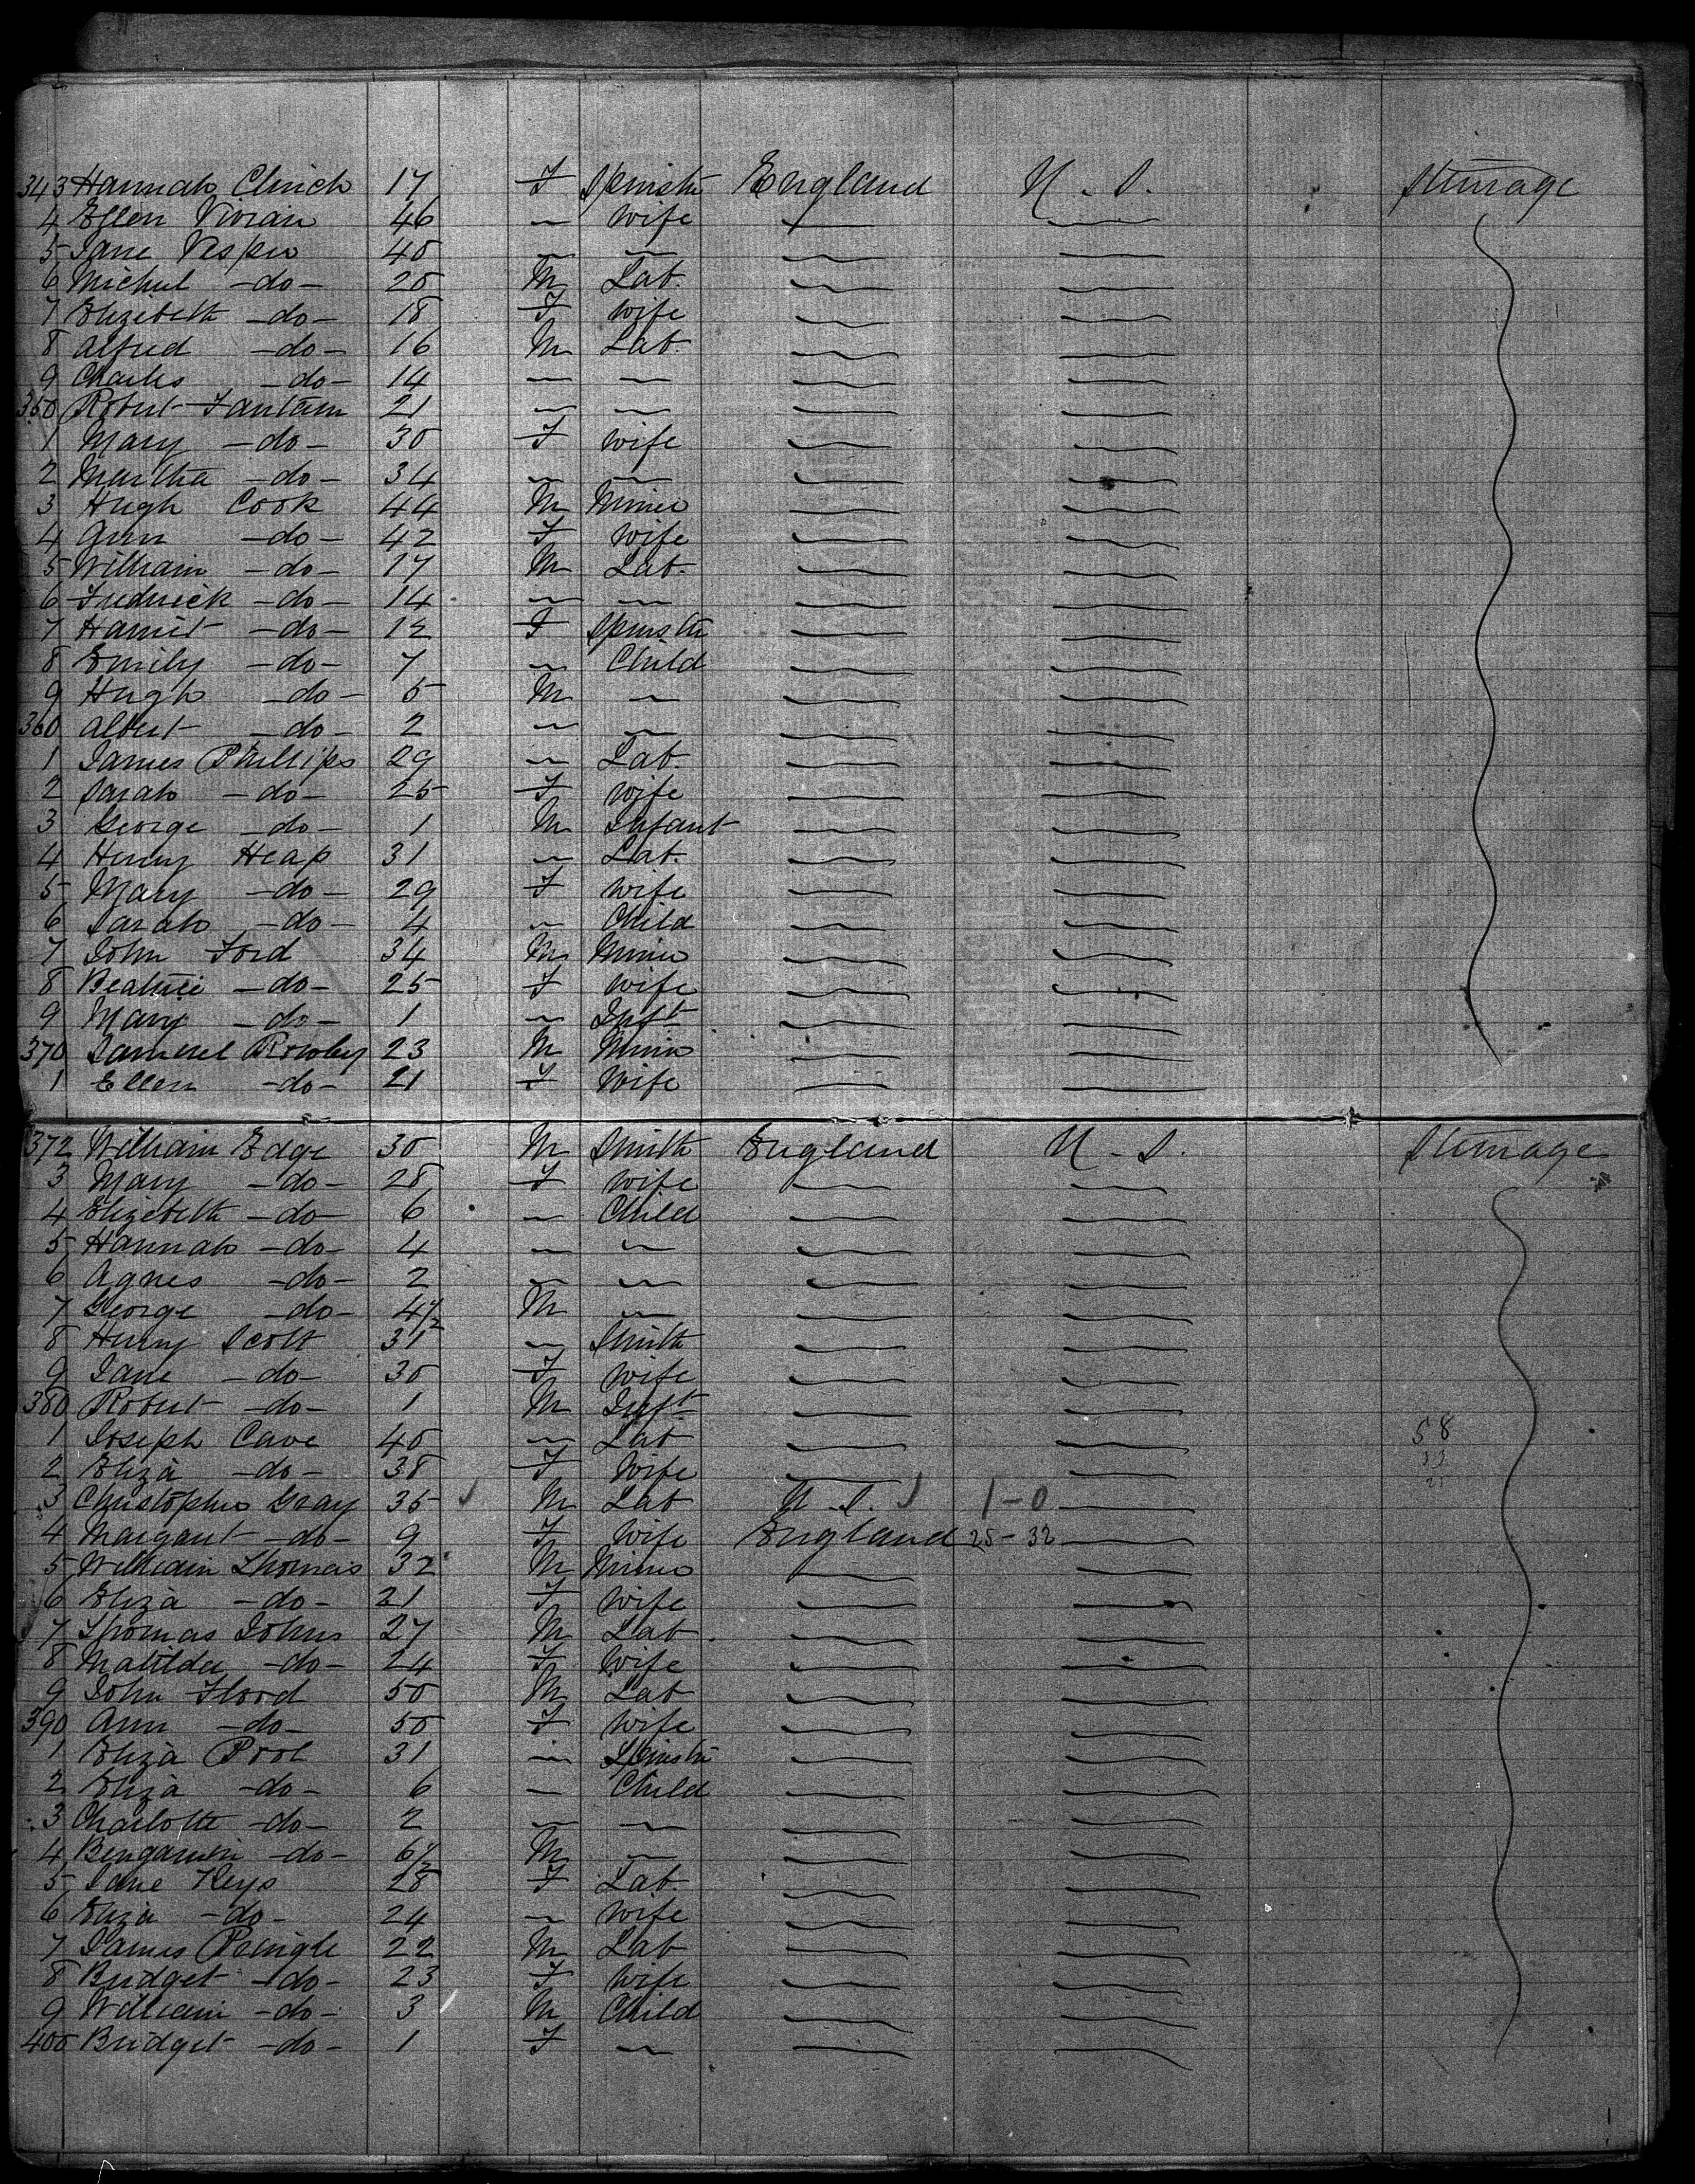 343 Hannah Clinch 17 F Spinstr England U.S. Steerage
4 Ellen Vivian 46 " wife
5 Jane Vesper 40 " "
6 Michul -do- 20 M Lab.
7 Elizebeth -do- 18 F wife
8 Alfred -do- 16 M Lab.
9 Charles -do- 14 " "
350 Robert Fantam 21 " "
1 Mary -do- 30 F wife
2 Martha -do- 34 " "
3 Hugh Cook 44 M Miner
4 Ann -do- 42 F wife
5 William -do- 17 M Lab.
6 Frederick -do- 14 " "
7 Harriet -do- 12 F Spinstr
8 Emily -do- 7 " Child
9 Hugh -do- 5 M "
360 Albert -do- 2 " "
1 James Phillips 29 " Lab.
2 Sarah -do- 25 F wife
3 George -do- 1 M Infant
4 Henry Heap 31 " Lab.
5 Mary -do- 29 F wife
6 Sarah -do- 4 " Child
7 John Ford 34 M Miner
8 Beatrice -do- 25 F wife
9 Mary -do- 1 " Inft
370 Samuel Rowley 23 M Miner
1 Ellen -do- 21 F Wife
372 William Edge 30 M Smith England U.S. Steerage
3 Mary -do- 28 F wife
4 Elizebeth -do- 6 " Child
5 Hannah -do- 4 " "
6 Agnes -do- 2 " "
7 George -do- 4/12 M "
8 Henry Scott 31 " Smith
9 Jane -do- 30 F wife
380 Robert -do- 1 M Inft
1 Joseph Cave 40 " Lab 58
2 Eliza -do- 38 F Wife
3 Christopher Gray 35 M Lab U.S. 1-0
4 Margaret -do- 9 F Wife England 25-32
5 William Thomas 32 M Miner
6 Eliza -do- 21 F wife
7 Thomas Johns 27 M Lab.
8 Matilda -do- 24 F Wife
9 John Flood 50 M Lab
390 Ann -do- 50 F wife
1 Eliza Pool 31 " Spinstr
2 Eliza -do- 6 " Child
3 Charlotte -do- 2 " "
4 Bengamin -do- 6/12 M "
5 Jane Keys 28 F Lab.
6 Eliza -do- 24 " wife
7 James Pringle 22 M Lab
8 Bridget -do- 23 F wife
9 William -do- 3 M Child
400 Bridget -do- 1 F "